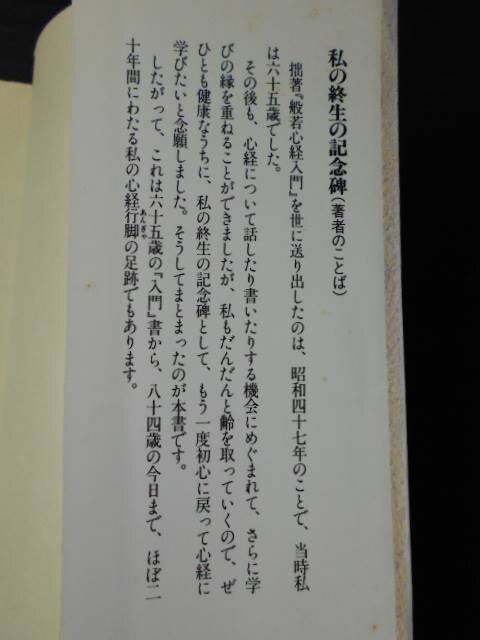 私の終生の記念碑（著者のことば）
拙著『般若心経入門』を世に送り出したのは、昭和四十七年のことで、当時私
は六十五歳でした。
その後も、心経について話したり書いたりする機会にめぐまれて、さらに学
びの縁を重ねることができましたが、私もだんだんと齢を取っていくので、ぜ
ひとも健康なうちに、私の終生の記念碑として、もう一度初心に戻って心経に
学びたいと念願しました。そうしてまとまったのが本書です。
したがって、これは六十五歳の『入門』書から、八十四歳の今日まで、ほぼ二
十年間にわたる私の心経行脚の足跡でもあります。
あんぎゃ